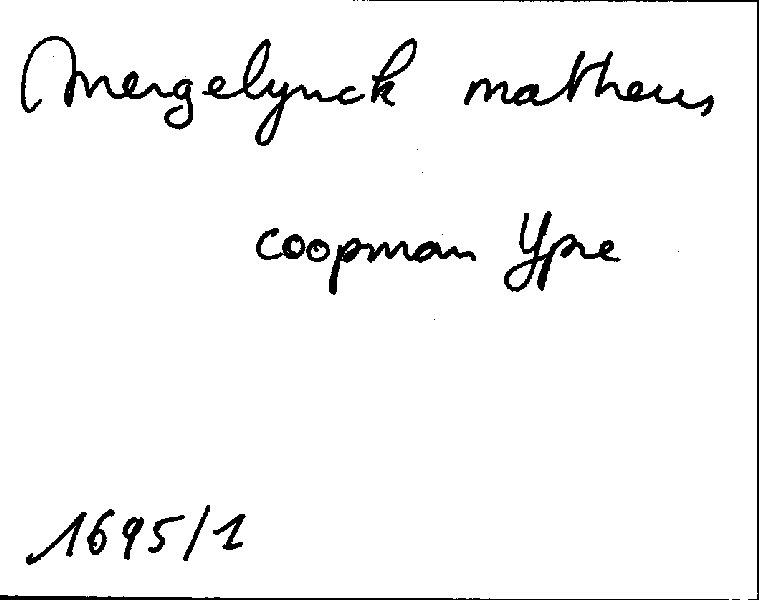 Mergelynck matheus
coopman Ypre
1695/1